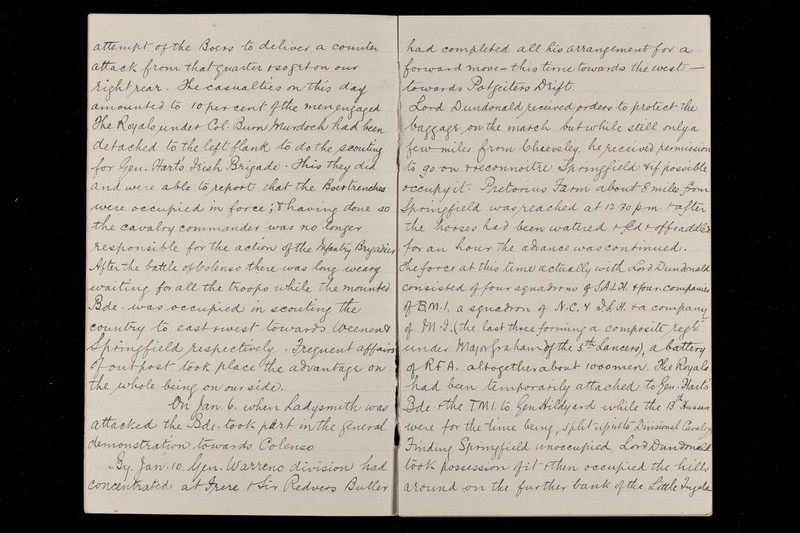 attempt of the Boers to deliver a counter
attack from that quarter & so get on our
right rear. The casualties on this day
amounted to 10 per cent of the men engaged
The Royals under Col. Burn Murdoch had been
detached to the left flank to do the scouting
for Gen. Hart's Irish Brigade. This they did
and were able to report that the Boer trenches
were occupied in force; & having done so
the cavalry commander was no longer
responsible for the action of the Infantry Brigadier
After the battle of Colenso there was long weary
waiting for all the troops while the mounted
Bde. was occupied in scouting the
country to east & west towards Weenen &
Springfield respectively. Frequent affairs
of outpost took place the advantage on
the whole being on our side.
On Jan. 6. when Ladysmith was
attacked the Bde. took part in the general
demonstration towards Colenso
By Jan. 10. Gen. Warrens division had
concentrated at Frere & Sir Redvers Buller
had completed all his arrangement for a
forward move – this time towards the west –
towards Potgeiters Drift.
Lord Dundonald received orders to protect the
baggage on the march but while still only a
few miles from Chieveley, he received permission
to go on & reconnoitre Springfield & if possible
occupy it. Pretorius Farm about 8 miles from
Springfield was reached at 12 30 pm. & after
the horses had been watered & fed & offsaddled
for an hour the advance was continued.
The force at this time actually with Lord Dundonald
consisted of four squadrons of S.A.L.H. & four companies
of B.M.I. a squadron of N.C. & I.L.H. & a company
of M.I. (the last three forming a composite regt
under Major Graham of the 5th Lancers), a battery
of R.F.A. altogether about 1000 men. The Royals
had been temporarily attached to Gen. Hart's
Bde & the T.M.I. to Gen Hildyard while the 13th Hussars
were for the time being, split up into Divisional Cavalry
Finding Springfield unoccupied, Lord Dundonald
took possession of it & then occupied the hills
around on the further bank of the Little Tugela